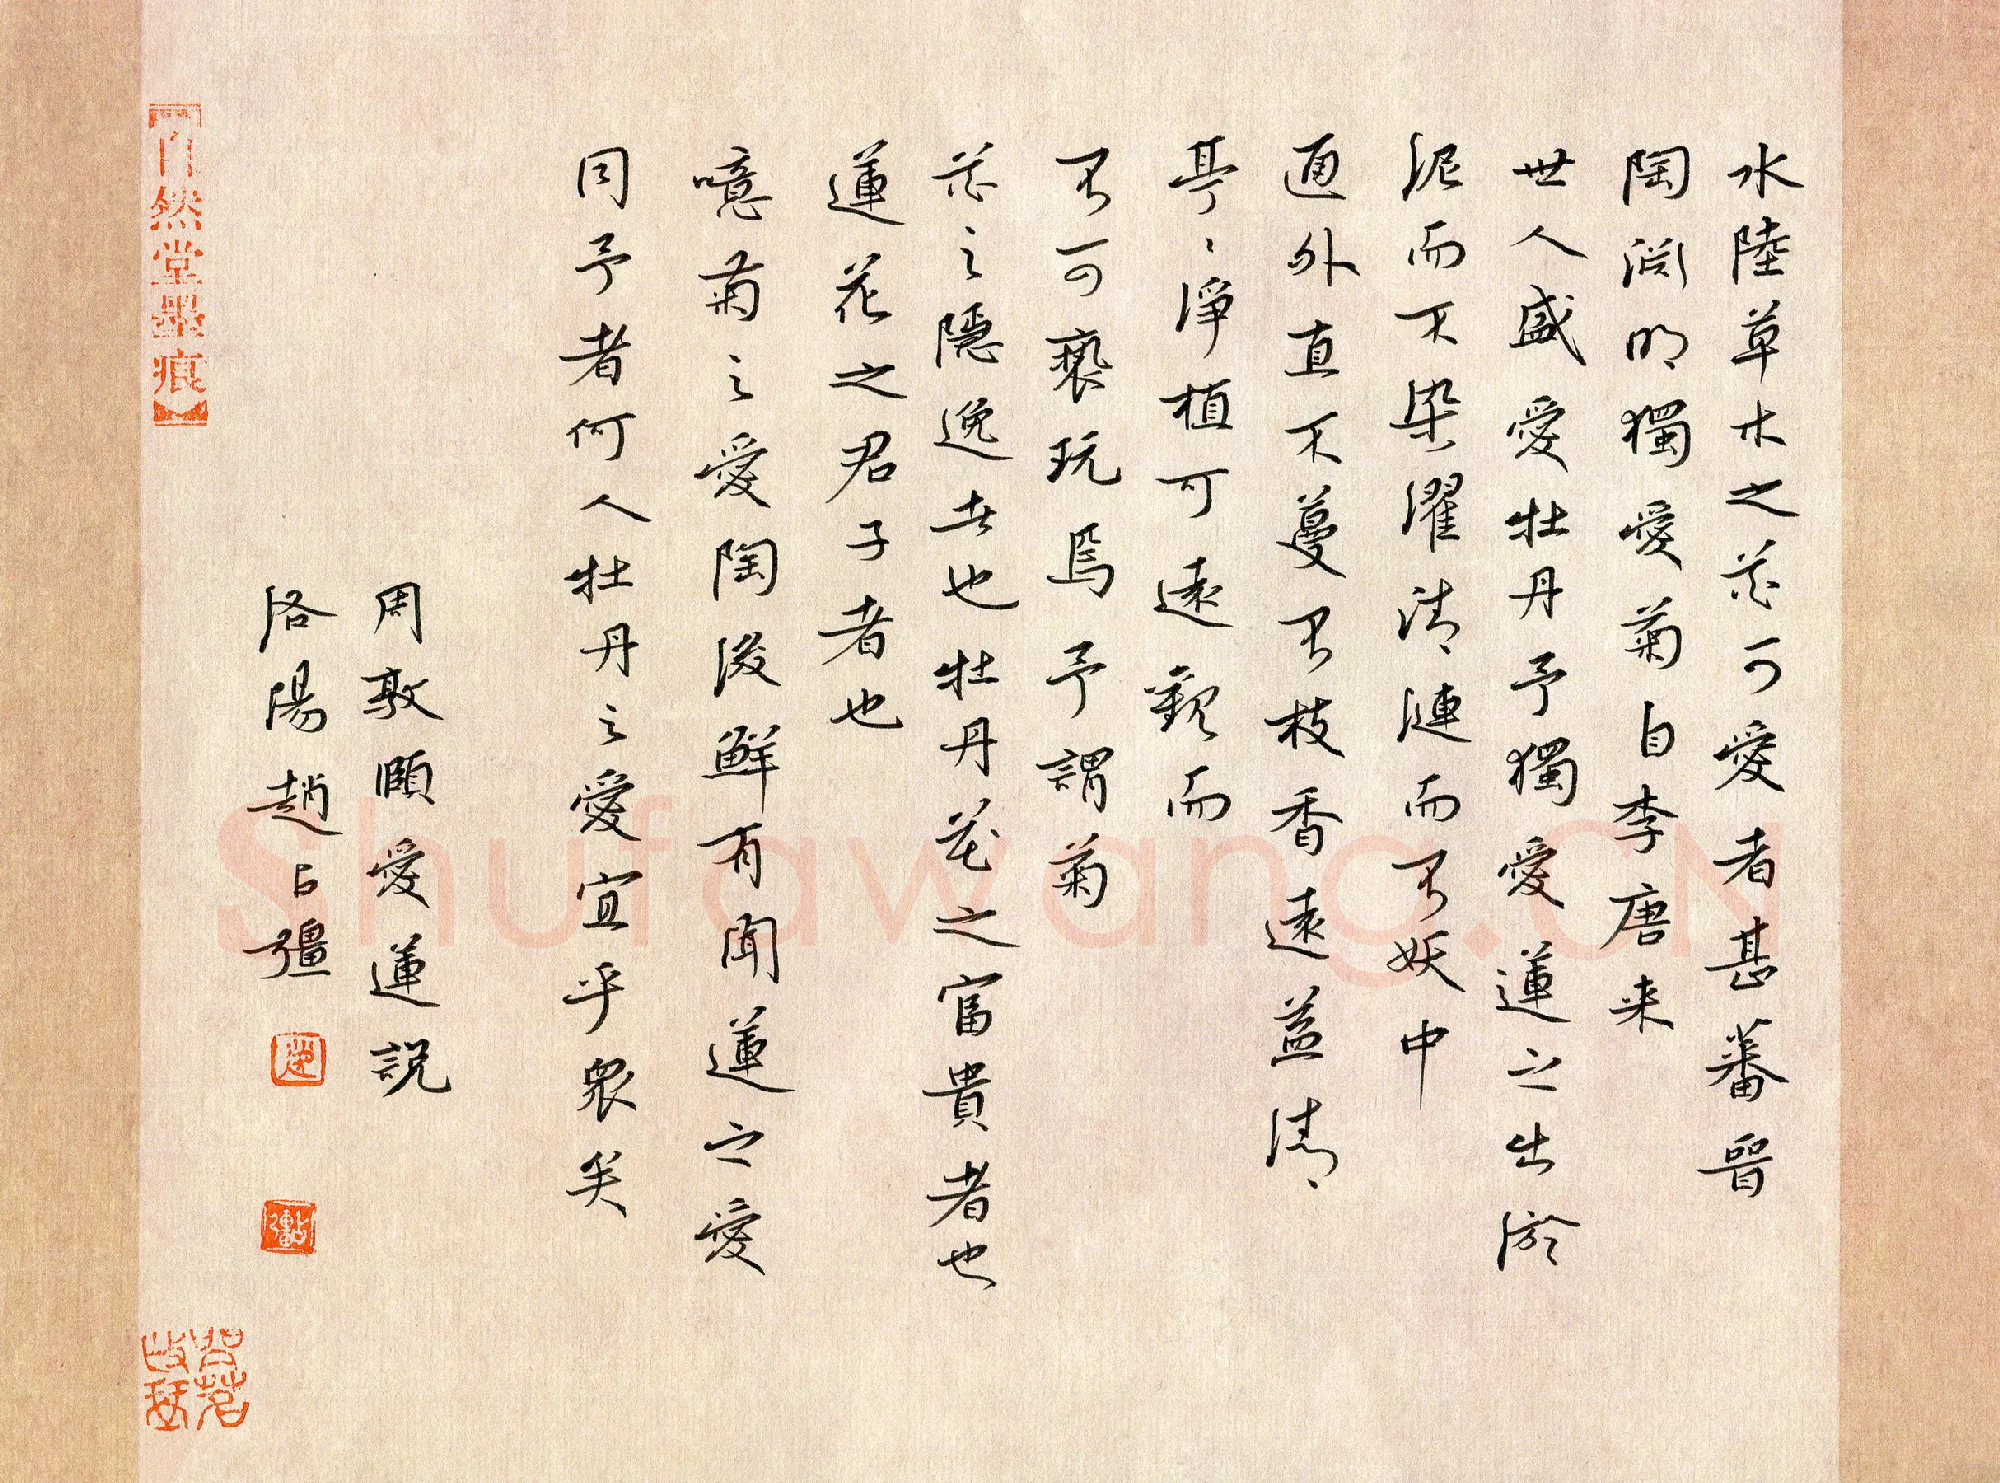 水陸草木之花可愛者甚蕃晉
陶淵明獨愛菊自李唐来
世人盛愛牡丹予獨愛蓮之出淤
泥而不染濯清漣而不妖中
通外直不蔓不枝香遠益清
亭〻淨植可遠觀而
不可褻玩焉予謂菊
花之隱逸者也牡丹花之富貴者也
蓮花之君子者也
噫菊之愛陶後鮮有聞蓮之愛
同予者何人牡丹之愛宜乎衆矣
周敦頤愛蓮説
洛陽趙占彊
自然堂墨痕
Shufawang.CN